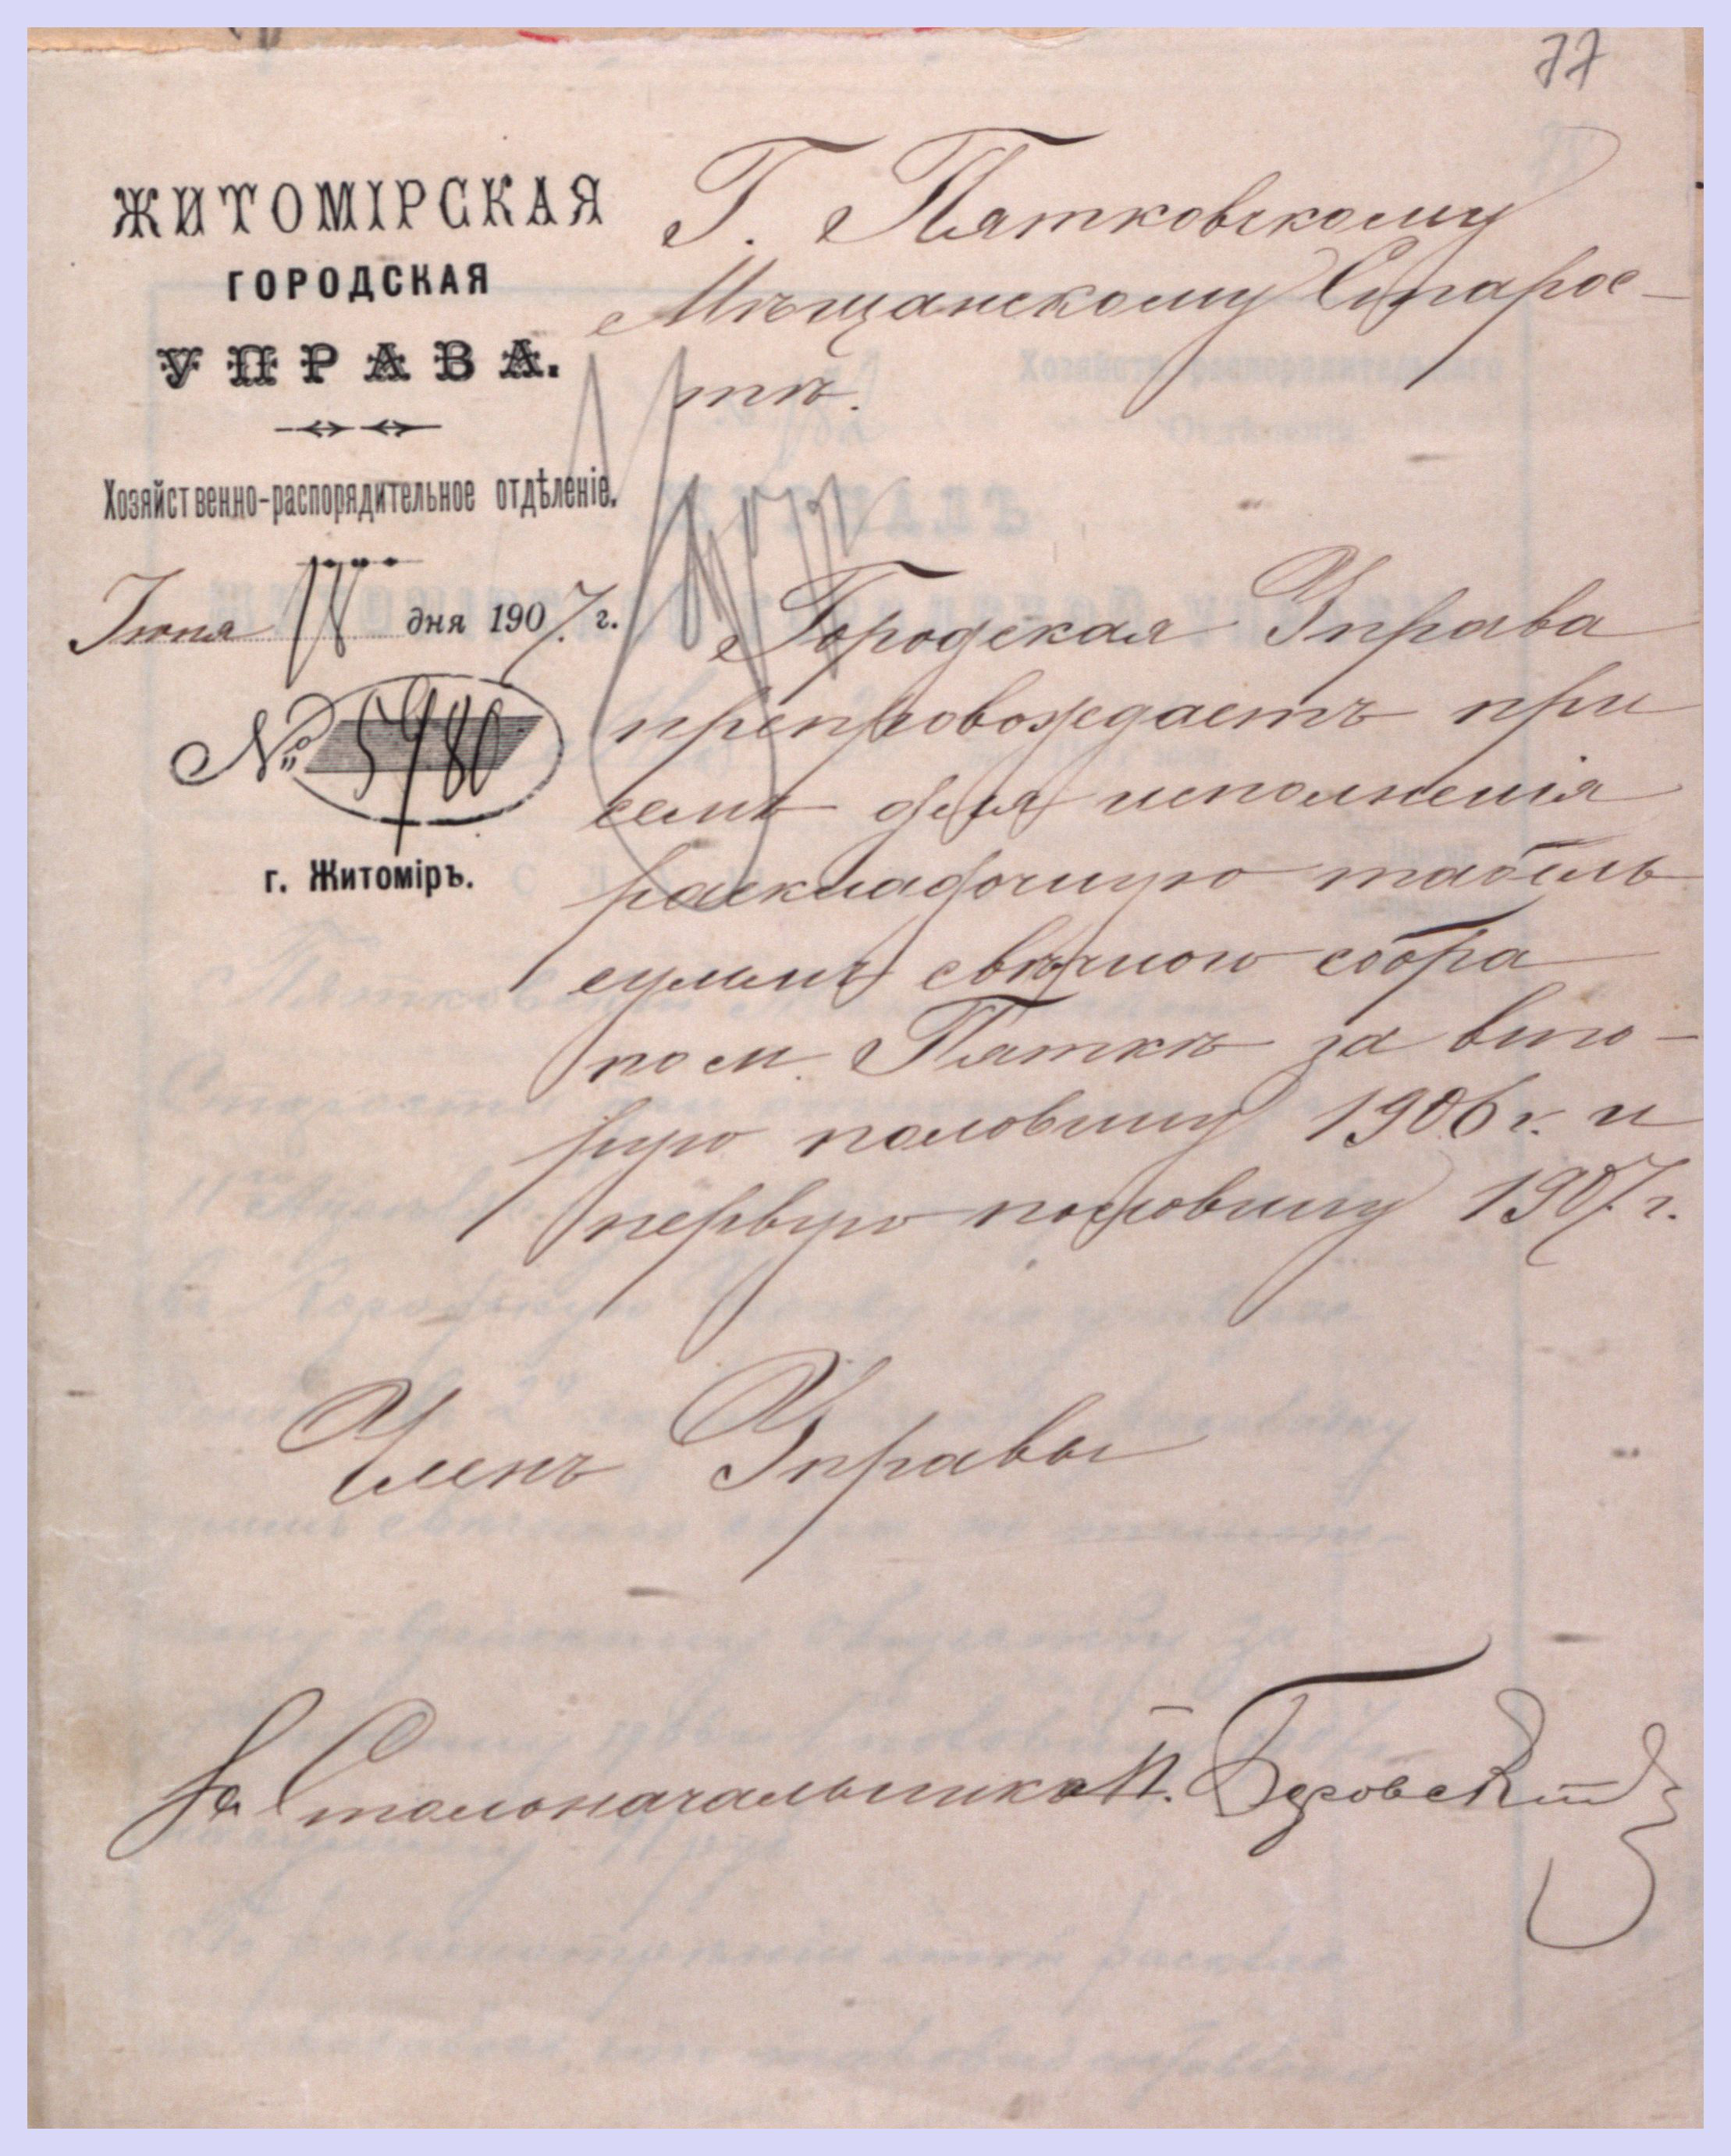 77
ЖИТОМІРСКАЯ
ГОРОДСКАЯ
УПРАВА.
Хозяйственно-распорядительное отдѣленіе.
Іюня 18 дня 1907 г.
№ 5980
г. Житоміръ.
Г. Пятковскому
Мѣщанскому Старос-
тѣ.
Городская Управа
препровождаетъ при
семъ для исполненія
раскладочную табель
суммы свѣчного сбора
по м. Пяткѣ за вто-
рую половину 1906 г. и
первую половину 1907 г.
Членъ Управы
За Столоначальника П.